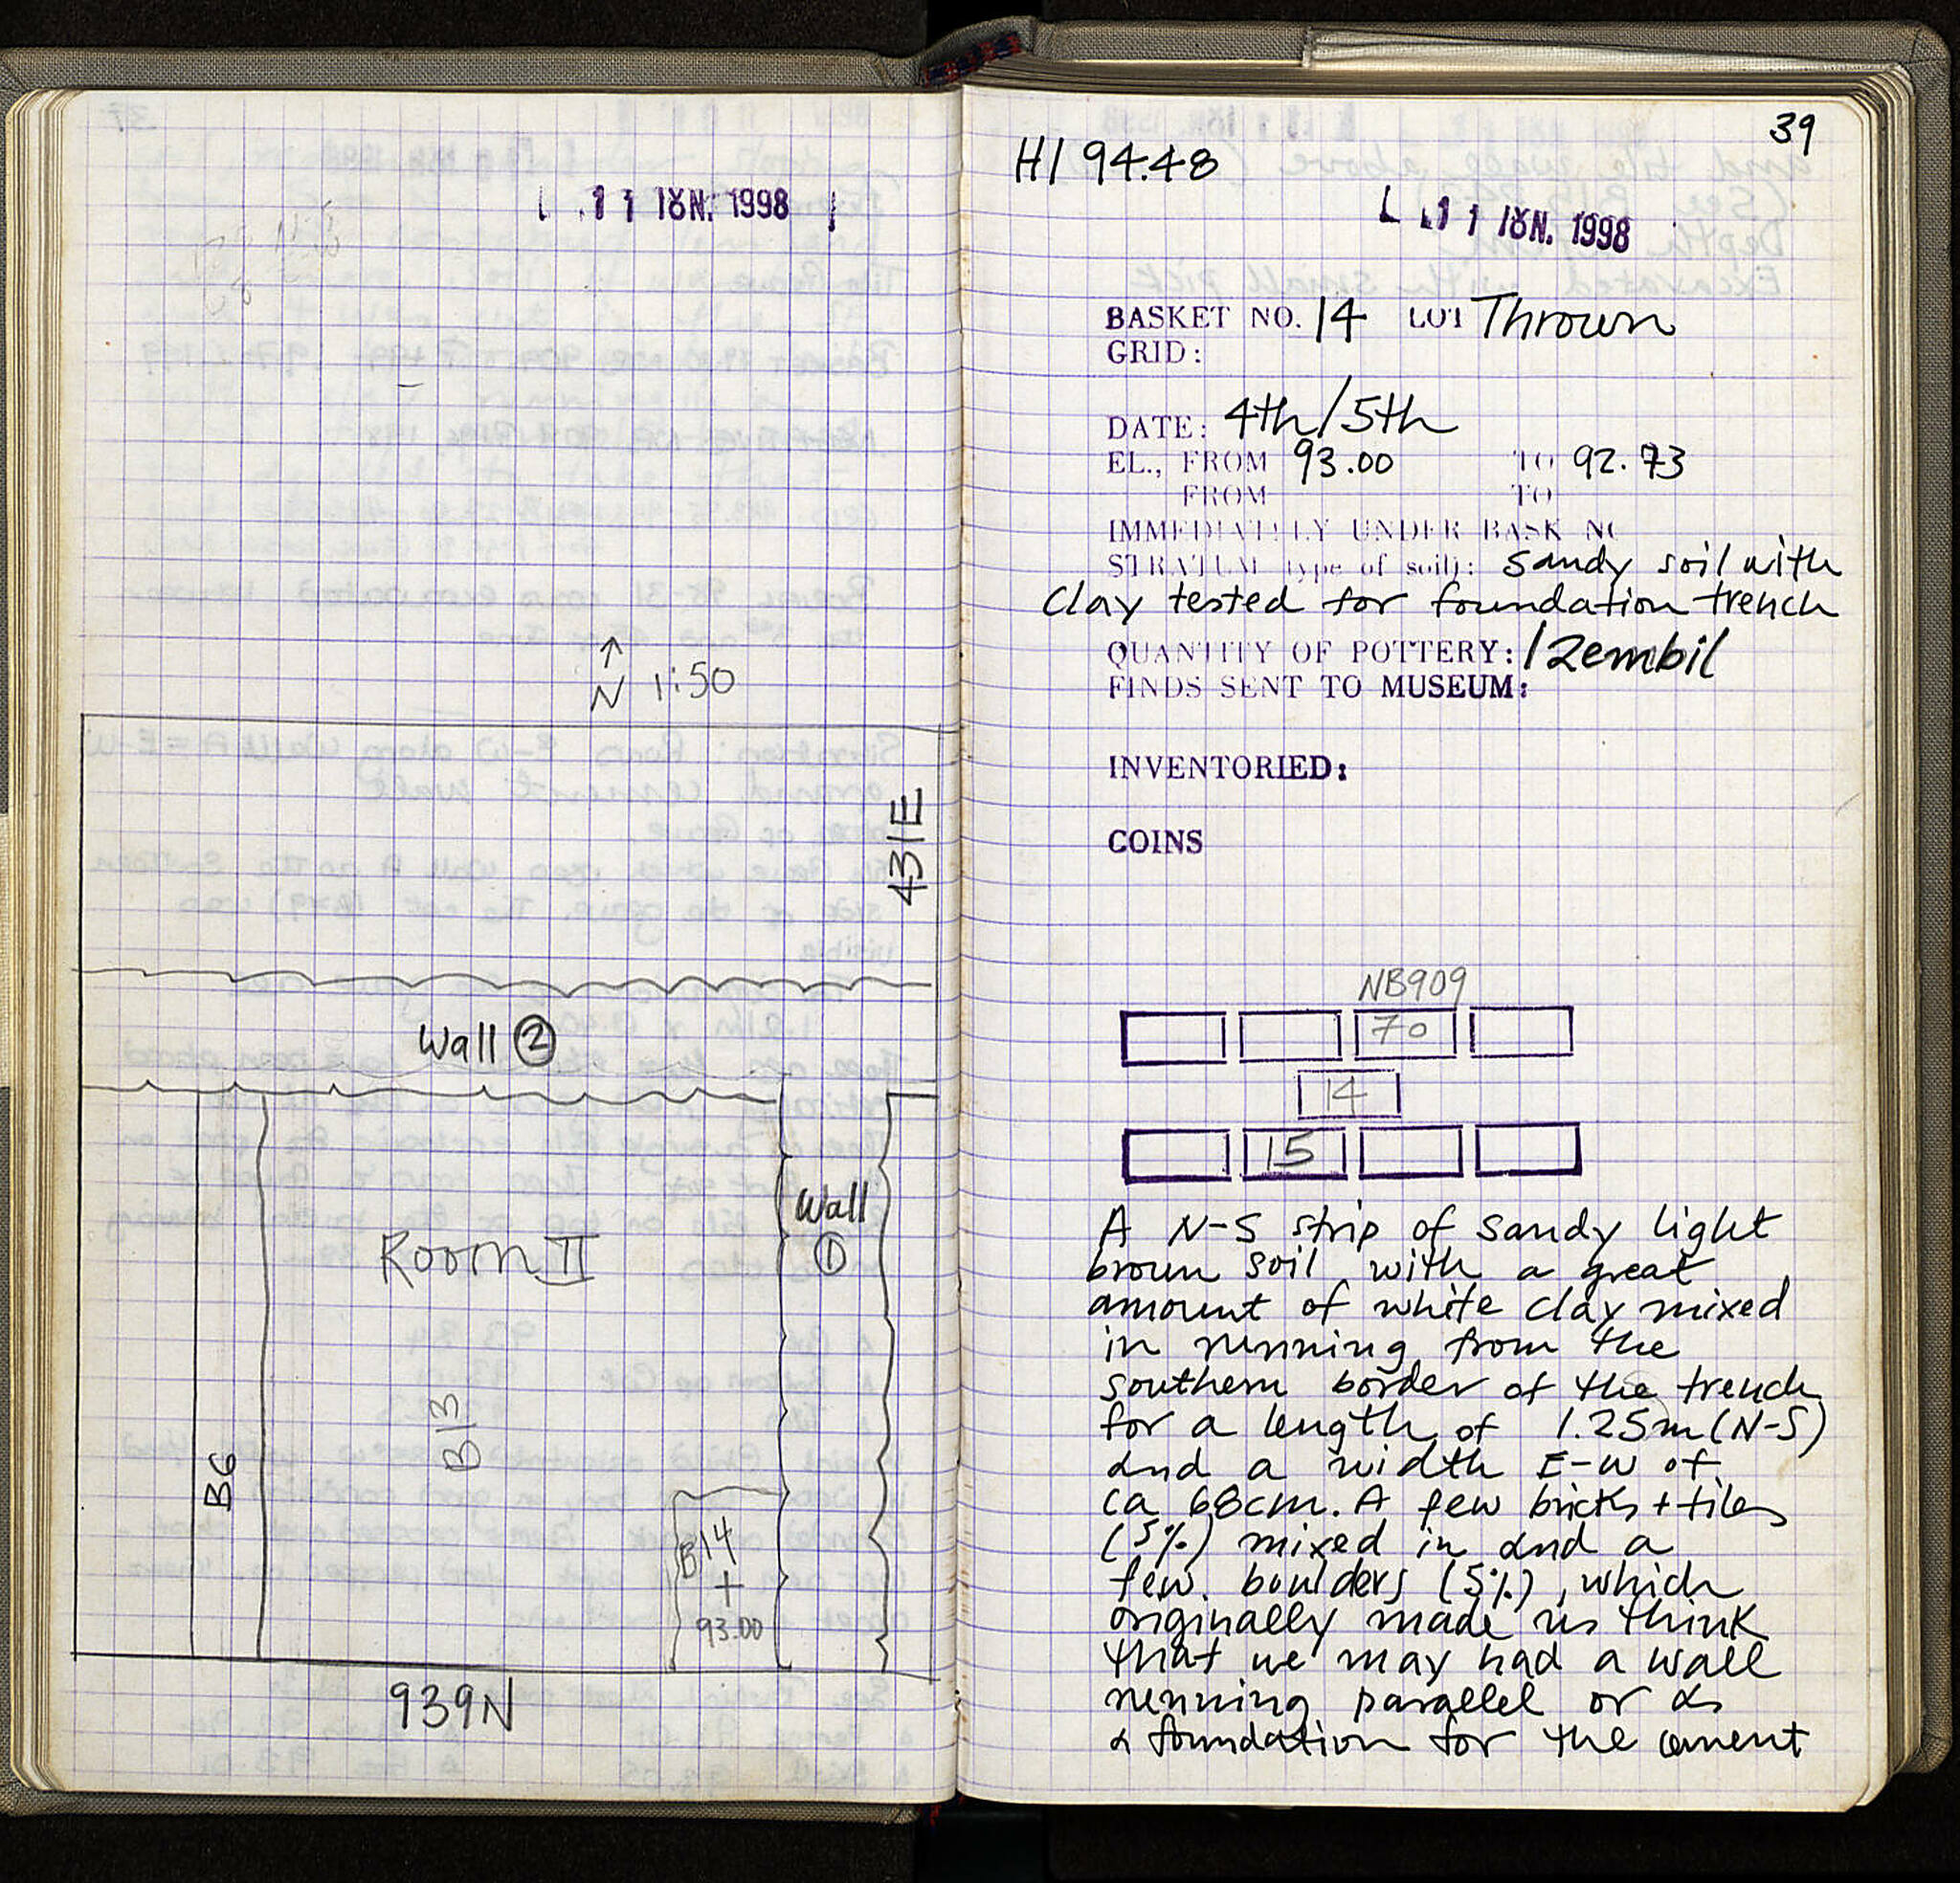 11 ΙΟΥΝ. 1998
↑
N 1:50
431E
Wall ②
Wall
①
Room II
B6
B13
B14
+
93.00
939N
39
HI 94.48
11 ΙΟΥΝ. 1998
BASKET NO. 14 LOT Thrown
GRID:
DATE: 4th/5th
EL., FROM 93.00 TO 92.73
FROM TO
IMMEDIATELY UNDER BASK NO
STRATUM (type of soil): Sandy soil with
Clay tested for foundation trench
QUANTITY OF POTTERY: 1 Zembil
FINDS SENT TO MUSEUM:
INVENTORIED:
COINS
NB909
70
14
15
A N-S strip of sandy light
brown soil with a great
amount of white clay mixed
in running from the
southern border of the trench
for a length of 1.25m (N-S)
and a width E-W of
ca 68cm. A few bricks + tiles
(5%) mixed in and a
few boulders (5%), which
originally made us think
that we may had a wall
running parallel or as
a foundation for the cement